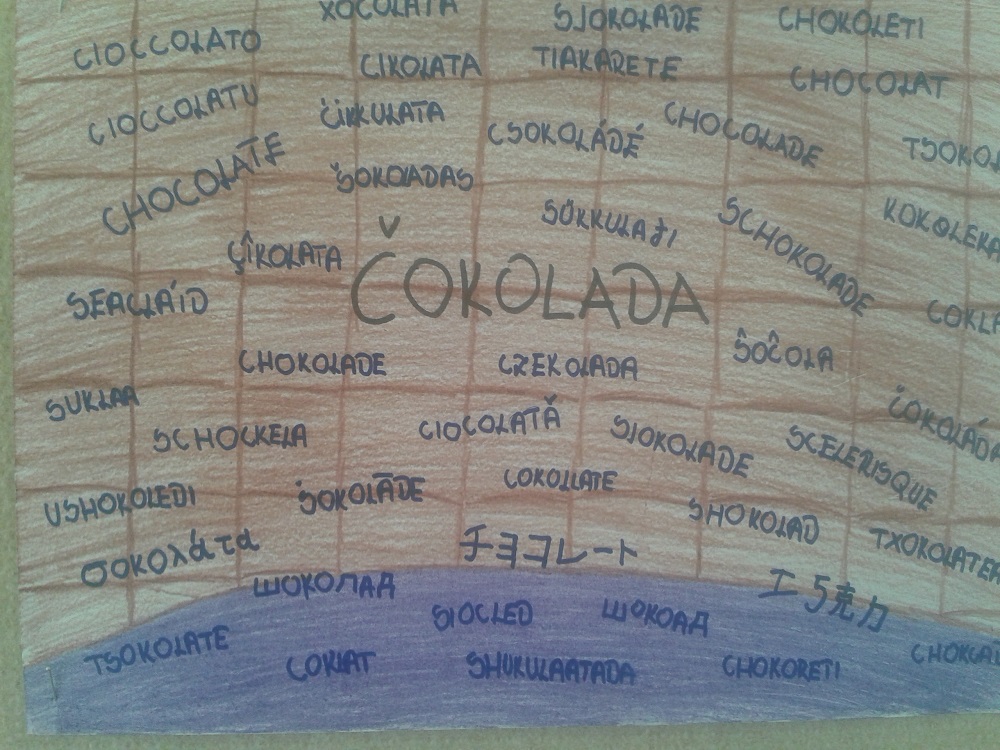 XOCOLATA
SJOKOLADE
CHOKOLETI
CIOCCOLATO
CIKOLATA
TIAKARETE
CHOCOLAT
CIOCCOLATU
ĊIKKULATA
CSOKOLÁDÉ
CHOCOLADE
TSOKOL
CHOCOLATE
ŠOKOLADAS
SÜKKULAĐI
SCHOKOLADE
KOKOLEKA
ÇÎKOLATA
ČOKOLADA
SEACLÁID
COKL
CHOKOLADE
CZEKOLADA
ŜOĈOLA
SUKLAA
SCHOCKELA
CIOCOLATĂ
SJOKOLADE
SCELERISQUE
ČOKOLÁDA
USHOKOLEDI
ŠOKOLĀDE
COKOLLATE
SHOKOLAD
TXOKOLATEA
σοκολάτα
チョコレート
ШОКОЛАД
SIOCLED
ШОКОАД
工巧克力
TSOKOLATE
COKLAT
SHUKULAATADA
CHOKORETI